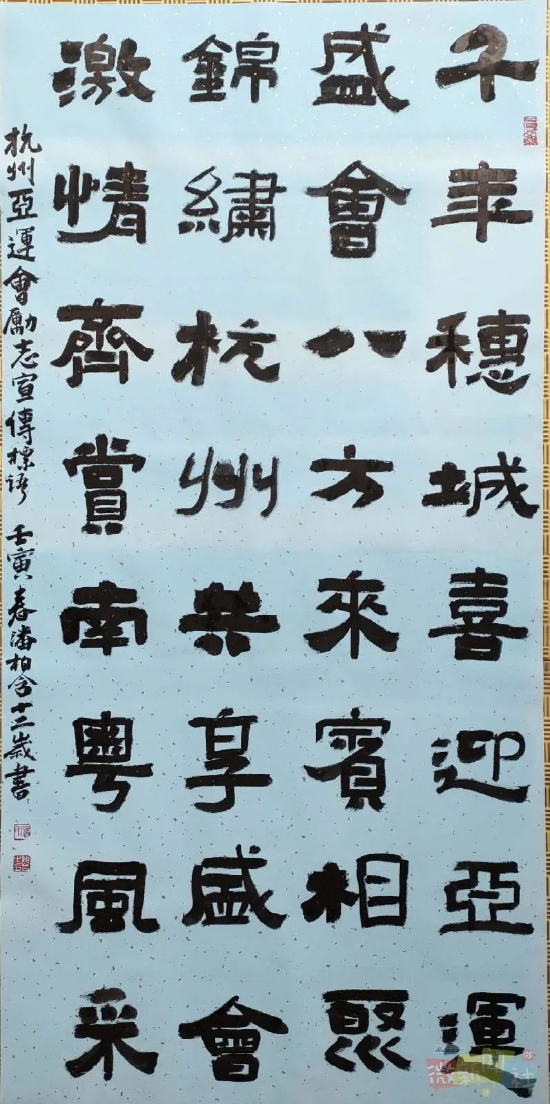 千年穗城喜迎亞運
盛會八方來賓相聚
錦繡杭州共享盛會
激情齊賞南粵風采
杭州亞運會勵志宣傳標語 壬寅春潘柏含十二歲書